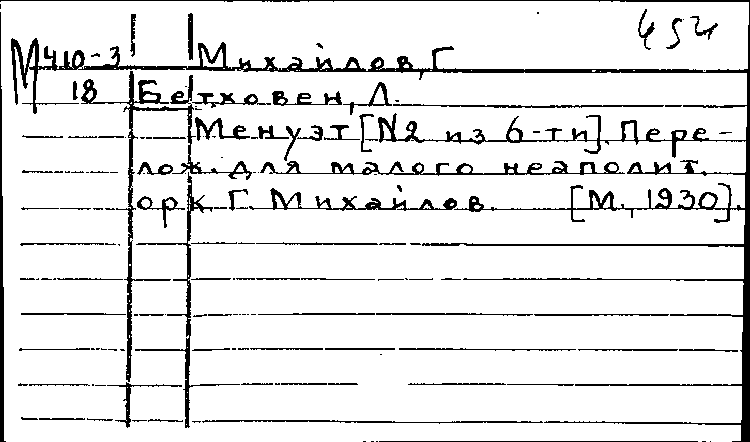 454
М 410-3 Михайлов, Г
18 Бетховен, Л.
Менуэт [N2 из 6-ти]. Пере-
лож. для малого неаполит.
орк. Г. Михайлов. [М., 1930].